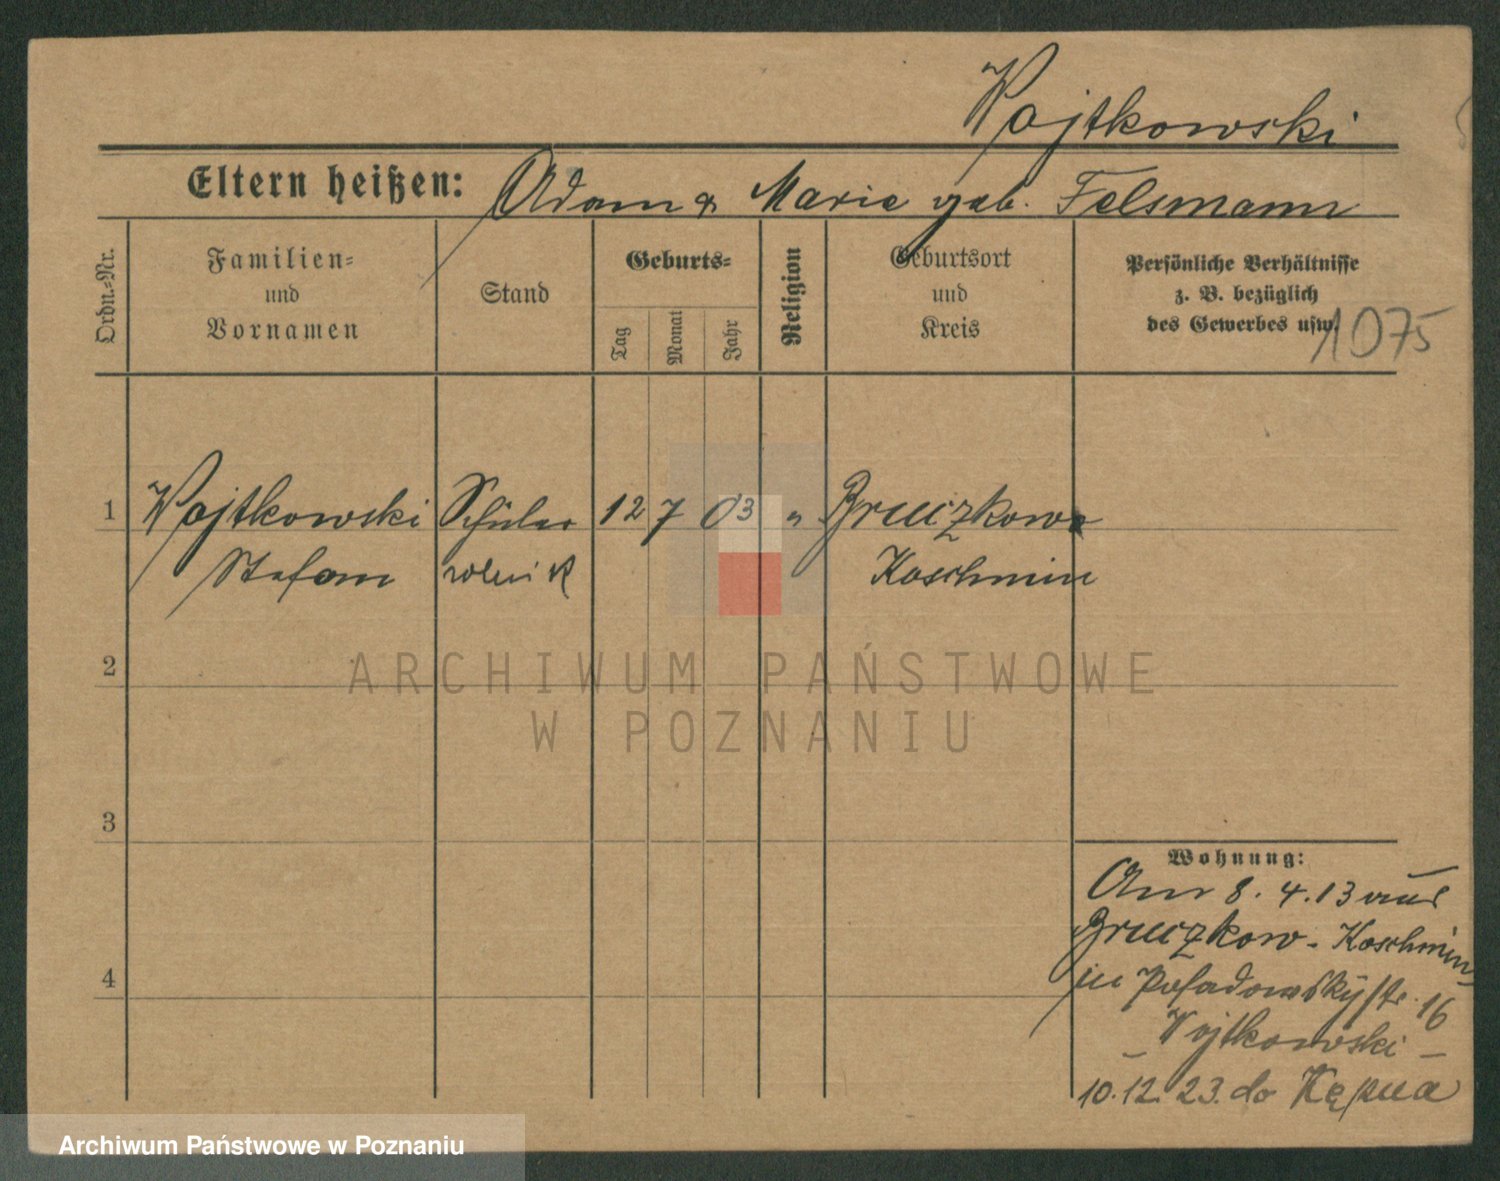 Wojtkowski
Eltern heißen: Adam & Marie geb. Felsmann
Ordn.-Nr.
Familien-
und
Vornamen
Stand
Geburts-
Tag
Monat
Jahr
Religion
Geburtsort
und
Kreis
Persönliche Verhältnisse
z. B. bezüglich
des Gewerbes usw.
1075
1 Wojtkowski Schüler 12 7 03 " Bruczkow
Stefan rolnik Koschmin
ARCHIWUM PAŃSTWOWE
W POZNANIU
2
3
4
Wohnung:
Am 8. 4. 13 aus
Bruczkow - Koschmin
in Posadowskystr. 16
Wojtkowski -
10. 12. 23. do Kępna
Archiwum Państwowe w Poznaniu